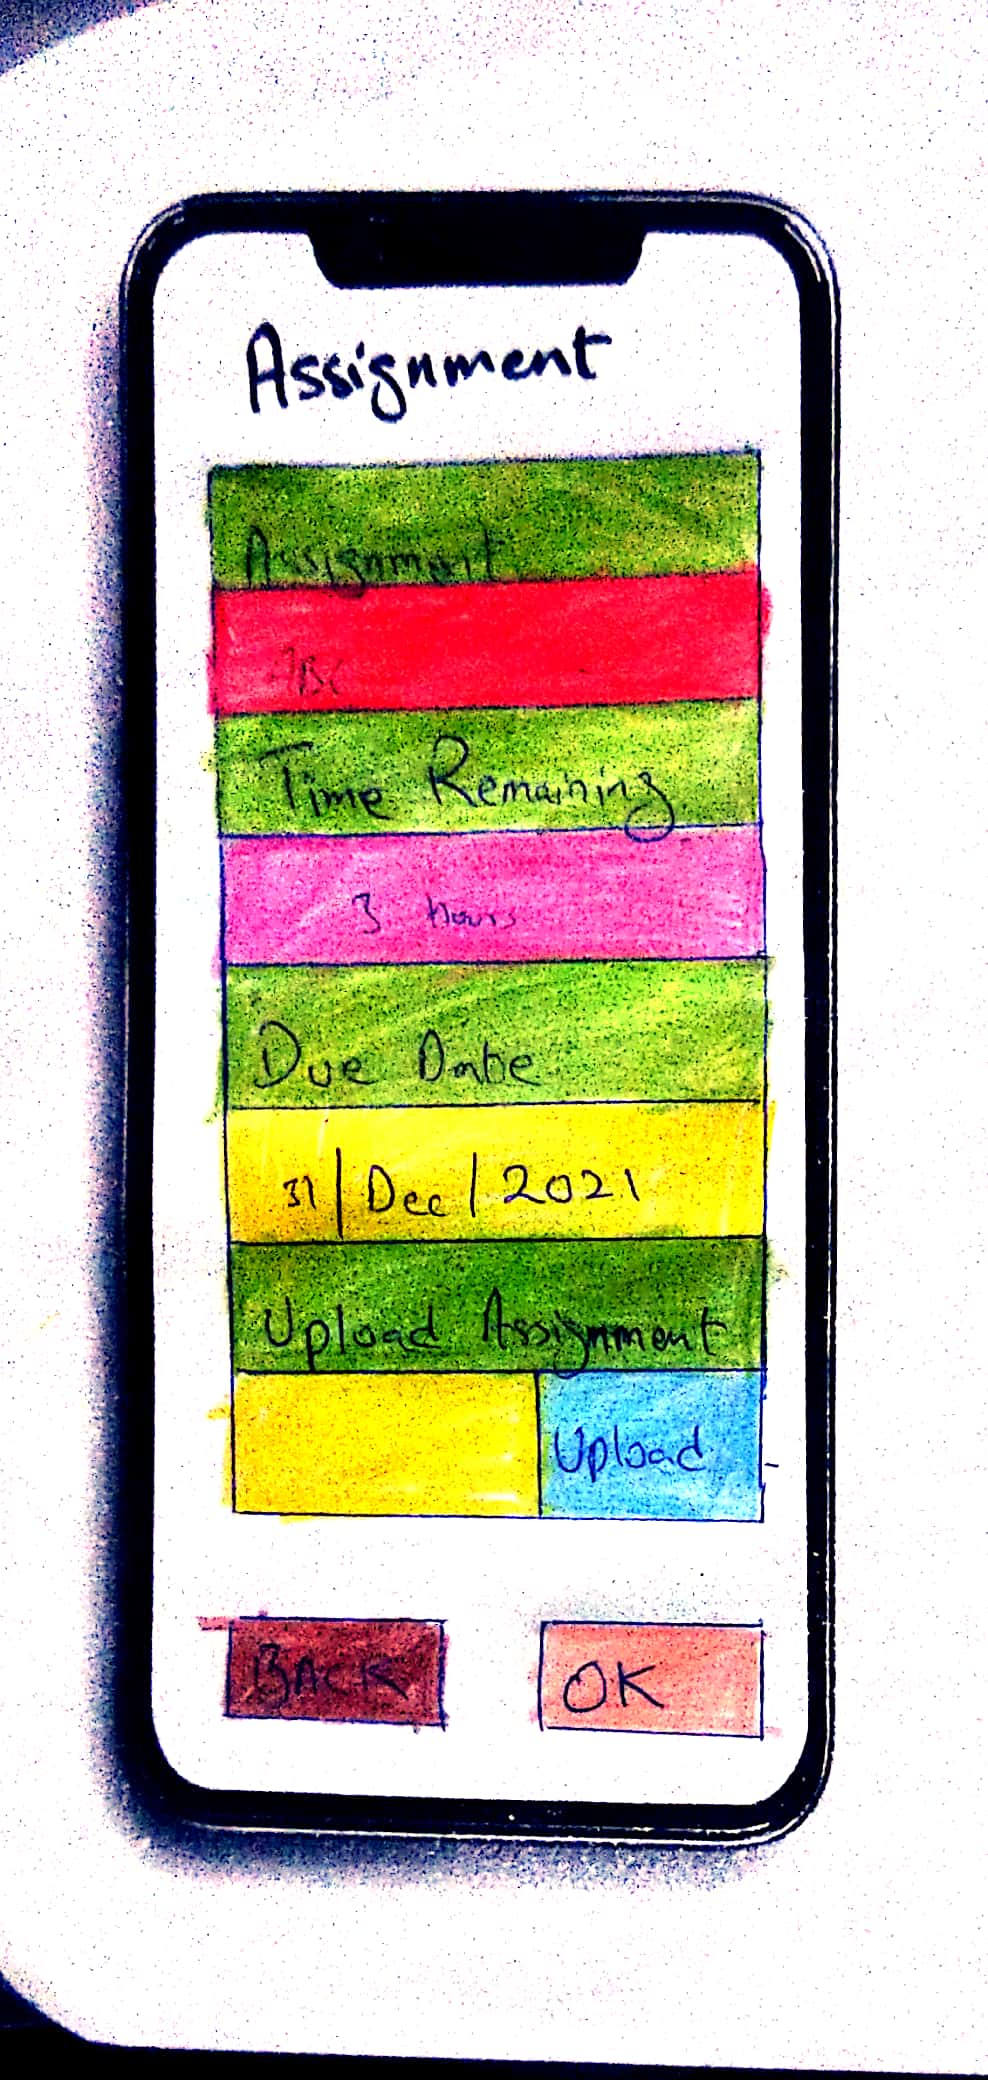 Assignment
Assignment
ABC
Time Remaining
3 hours
Due Date
31/Dec/2021
Upload Assignment
Upload
BACK
OK